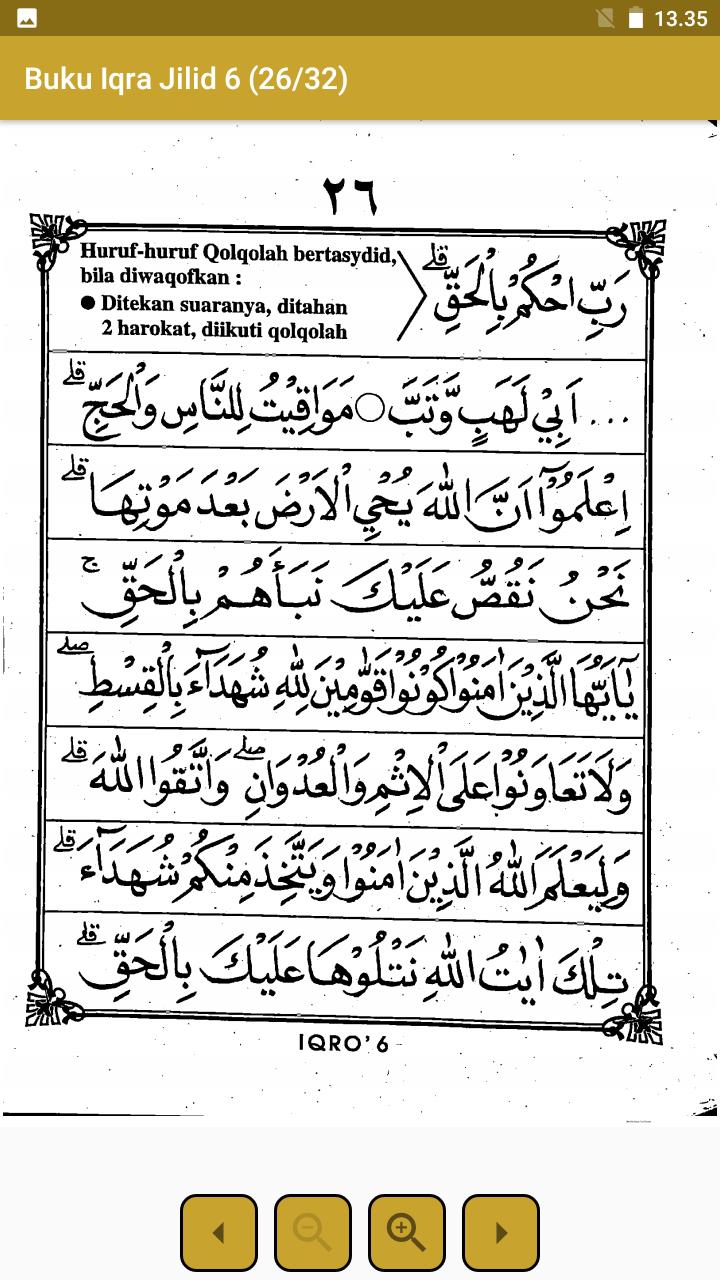 13.35
Buku Iqra Jilid 6 (26/32)
٢٦
Huruf-huruf Qolqolah bertasydid,
bila diwaqofkan :
● Ditekan suaranya, ditahan
2 harokat, diikuti qolqolah
رَبِّ احْكُمْ بِالْحَقِّ ۗ
... اَبِيْ لَهَبٍ وَّتَبَّ ○ مَوَاقِيْتُ لِلنَّاسِ وَالْحَجِّ ۗ
اِعْلَمُوْٓا اَنَّ اللّٰهَ يُحْيِ الْاَرْضَ بَعْدَ مَوْتِهَا ۗ
نَحْنُ نَقُصُّ عَلَيْكَ نَبَأَهُمْ بِالْحَقِّ ۚ
يٰٓاَيُّهَا الَّذِيْنَ اٰمَنُوْا كُوْنُوْا قَوّٰمِيْنَ لِلّٰهِ شُهَدَاۤءَ بِالْقِسْطِ ۖ
وَلَا تَعَاوَنُوْا عَلَى الْاِثْمِ وَالْعُدْوَانِ ۖ وَاتَّقُوا اللّٰهَ ۗ
وَلِيَعْلَمَ اللّٰهُ الَّذِيْنَ اٰمَنُوْا وَيَتَّخِذَ مِنْكُمْ شُهَدَاۤءَ ۗ
تِلْكَ اٰيٰتُ اللّٰهِ نَتْلُوْهَا عَلَيْكَ بِالْحَقِّ ۗ
IQRO' 6